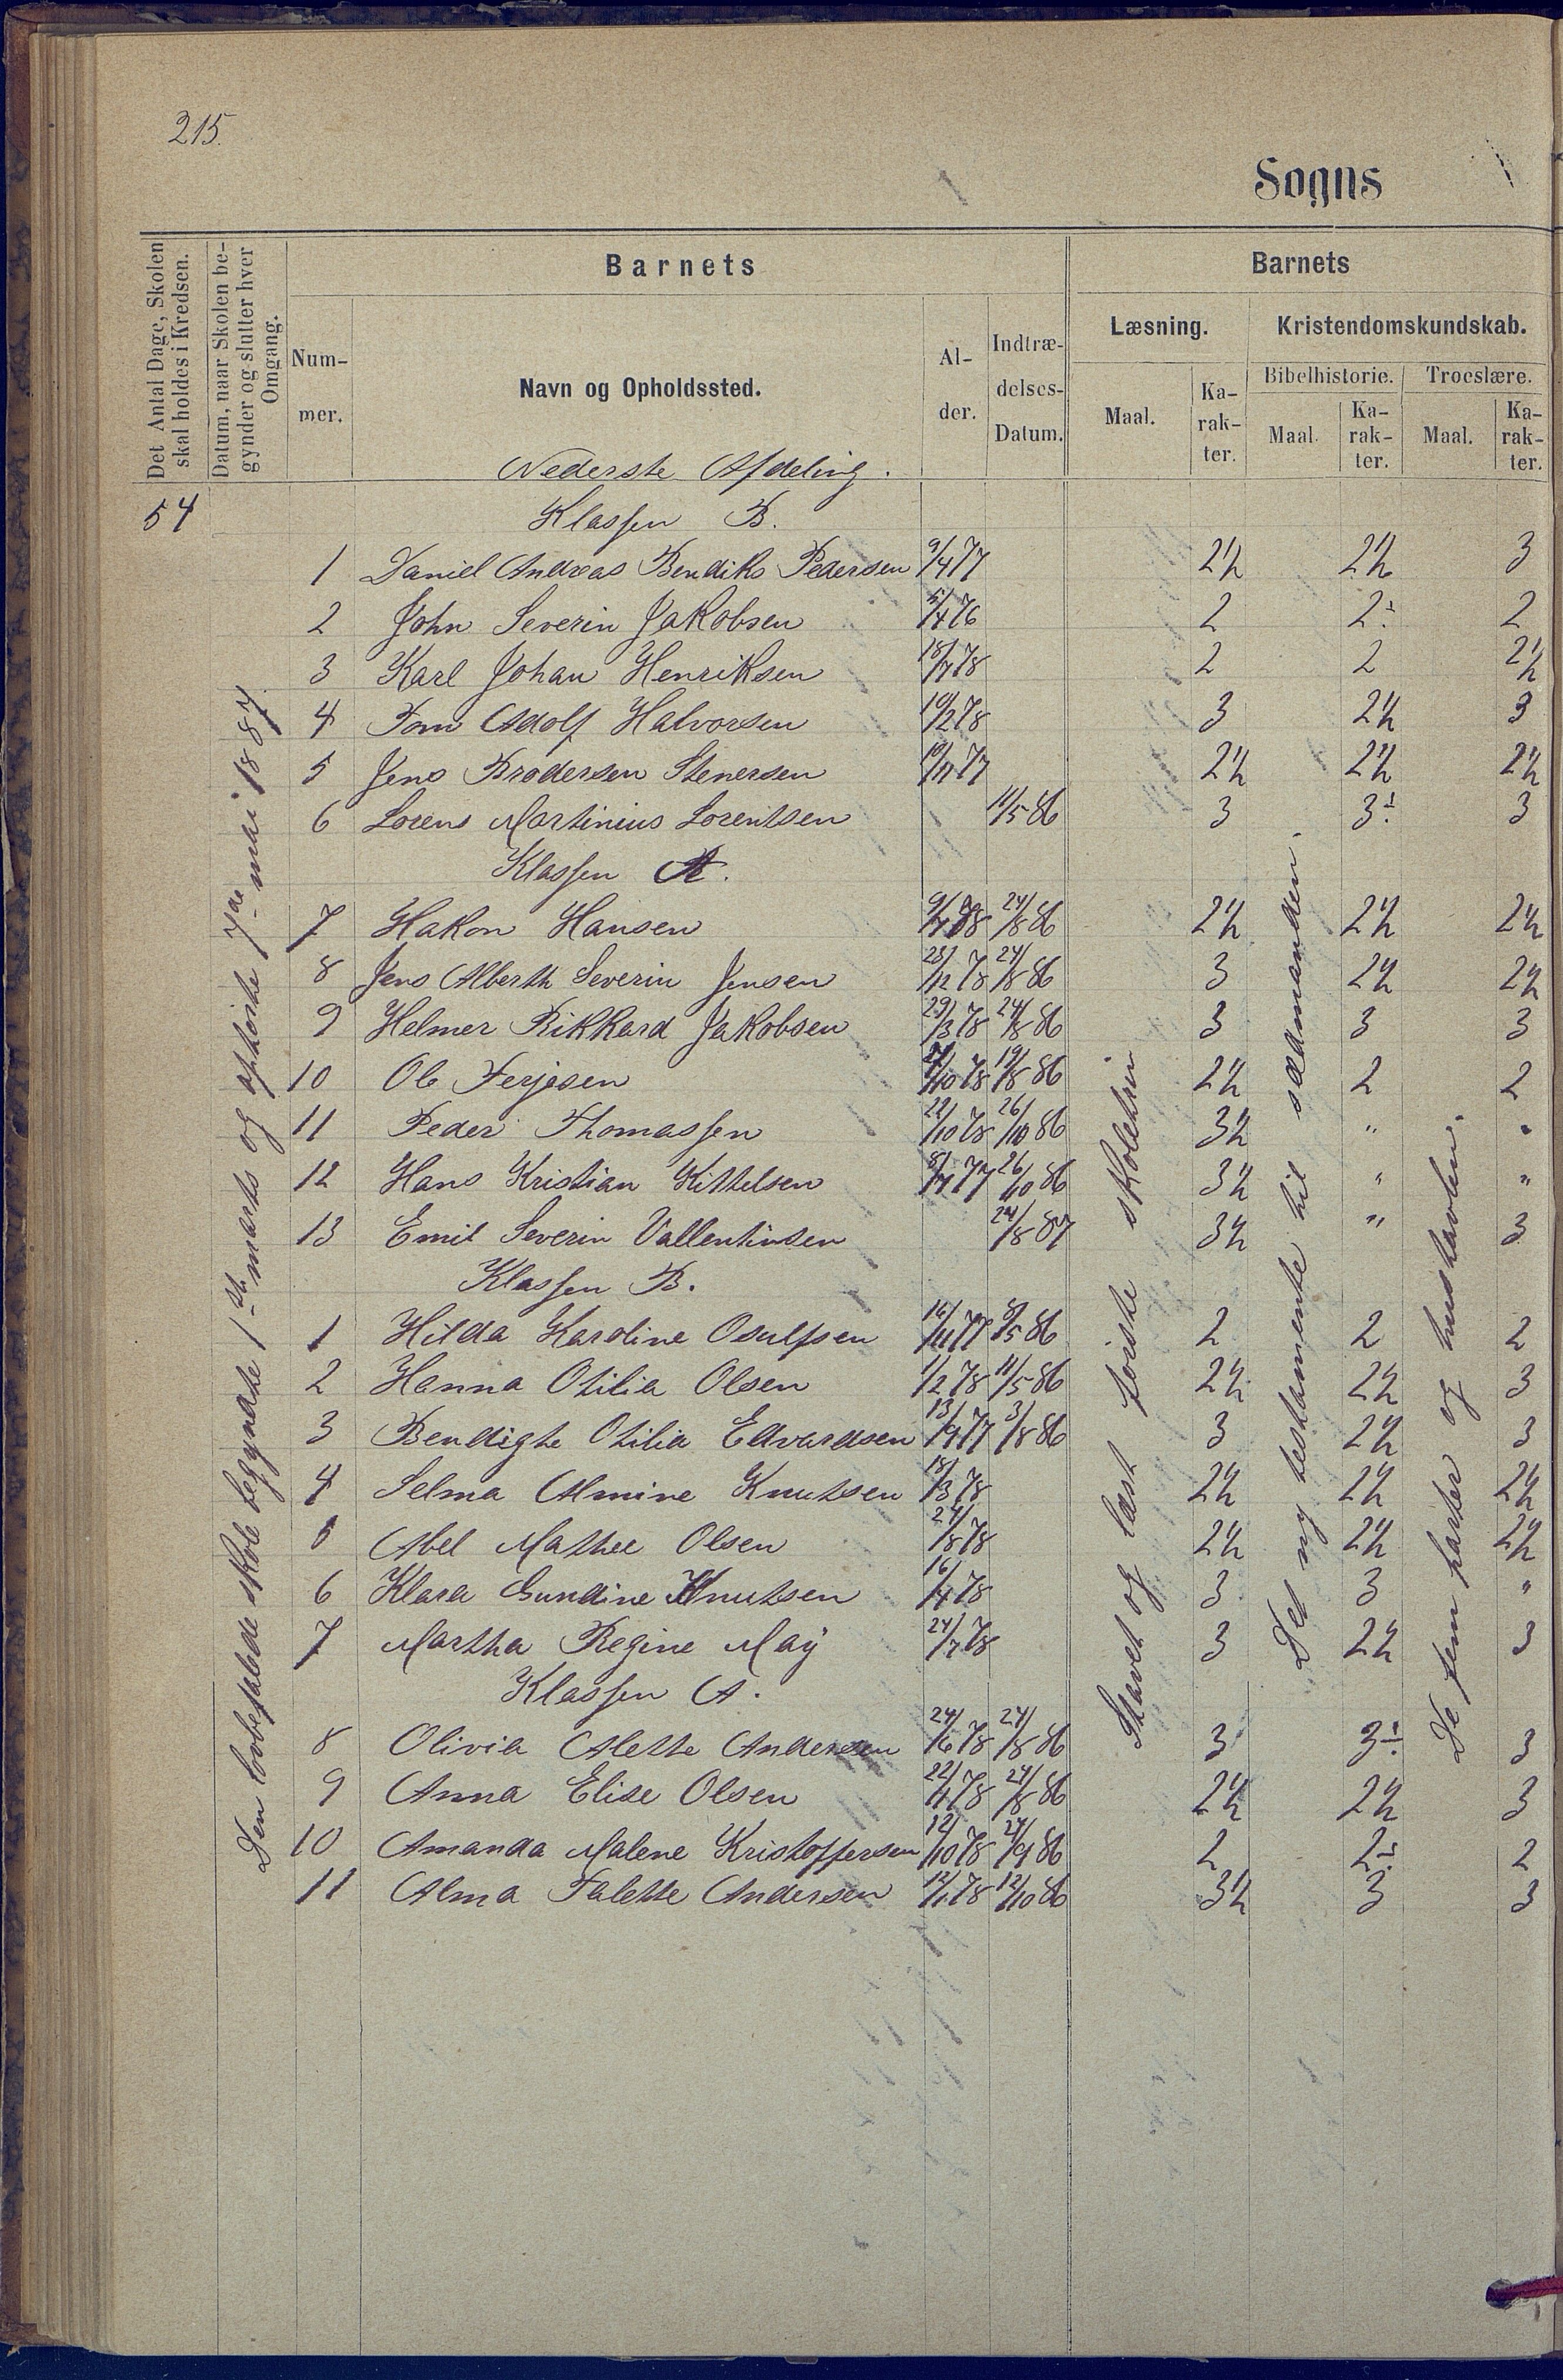 215.
Sogns
Det Antal Dage, Skolen
skal holdes i Kredsen.
Datum, naar Skolen be-
gynder og slutter hver
Omgang.
Barnets
Barnets
Num-
mer.
Navn og Opholdssted.
Al-
der.
Indtræ-
delses-
Datum.
Læsning.
Kristendomskundskab.
Maal.
Ka-
rak-
ter.
Bibelhistorie.
Troeslære.
Maal.
Ka-
rak-
ter.
Maal.
Ka-
rak-
ter.
Nederste Afdeling.
54
Klassen B.
1 Daniel Andreas Bendiks Pedersen 9/4 77 2½ 2½ 3
2 John Severin Jakobsen 5/4 76 2 2÷ 2
3 Karl Johan Henriksen 18/7 78 2 2 2½
4 Tom Adolf Halvorsen 10/2 78 3 2½ 3
5 Jens Brodersen Stenersen 10/11 77 2½ 2½ 2½
6 Lorens Martinius Lorentsen 11/5 86 3 3÷ 3
Klassen A.
7 Hakon Hansen 24/8 86 2½ 2½ 2½
8 Jens Alberth Severin Jensen 28/12 78 24/8 86 3 2½ 2½
9 Helmer Rikkard Jakobsen 29/3 78 24/8 86 3 3 3
10 Ole Terjesen 19/8 86 2½ 2 2
11 Peder Thomassen 22/10 78 26/10 86 3½ " "
12 Hans Kristian Kittelsen 26/10 86 3½ " "
13 Emil Severin Vallentinsen 24/8 87 3½ " 3
Klassen B.
1 Hilda Karoline Osulfsen 16/11 77 8/5 86 2 2 2
2 Hanna Otilia Olsen 1/2 78 11/5 86 2½ 2½ 3
3 Bendigte Otilia Edvardsen 13/9 77 3/8 86 3 2½ 3
4 Selma Almine Knutsen 18/3 78 2½ 2½ 2½
5 Abel Mathee Olsen 24/8 78 2½ 2½ 2½
6 Klara Gundine Knutsen 16/4 78 3 3 "
7 Martha Regine May 24/7 78 3 2½ 3
Klassen A.
8 Olivia Alette Andersen 24/6 78 24/8 86 3 3÷ 3
9 Anna Elise Olsen 22/4 78 24/8 86 2½ 2½ 3
10 Amanda Malene Kristoffersen 12/10 78 21/9 86 2 2÷ 2
11 Alma Talette Andersen 12/1 78 12/10 86 3½ 3 3
Den lovbefalede skole begyndte 1ste marts og ophørte 7de mai 1887.
Stavet og læst første skoletrin
Det ny testamente til sædmanden.
De fem parter og hustavlen.